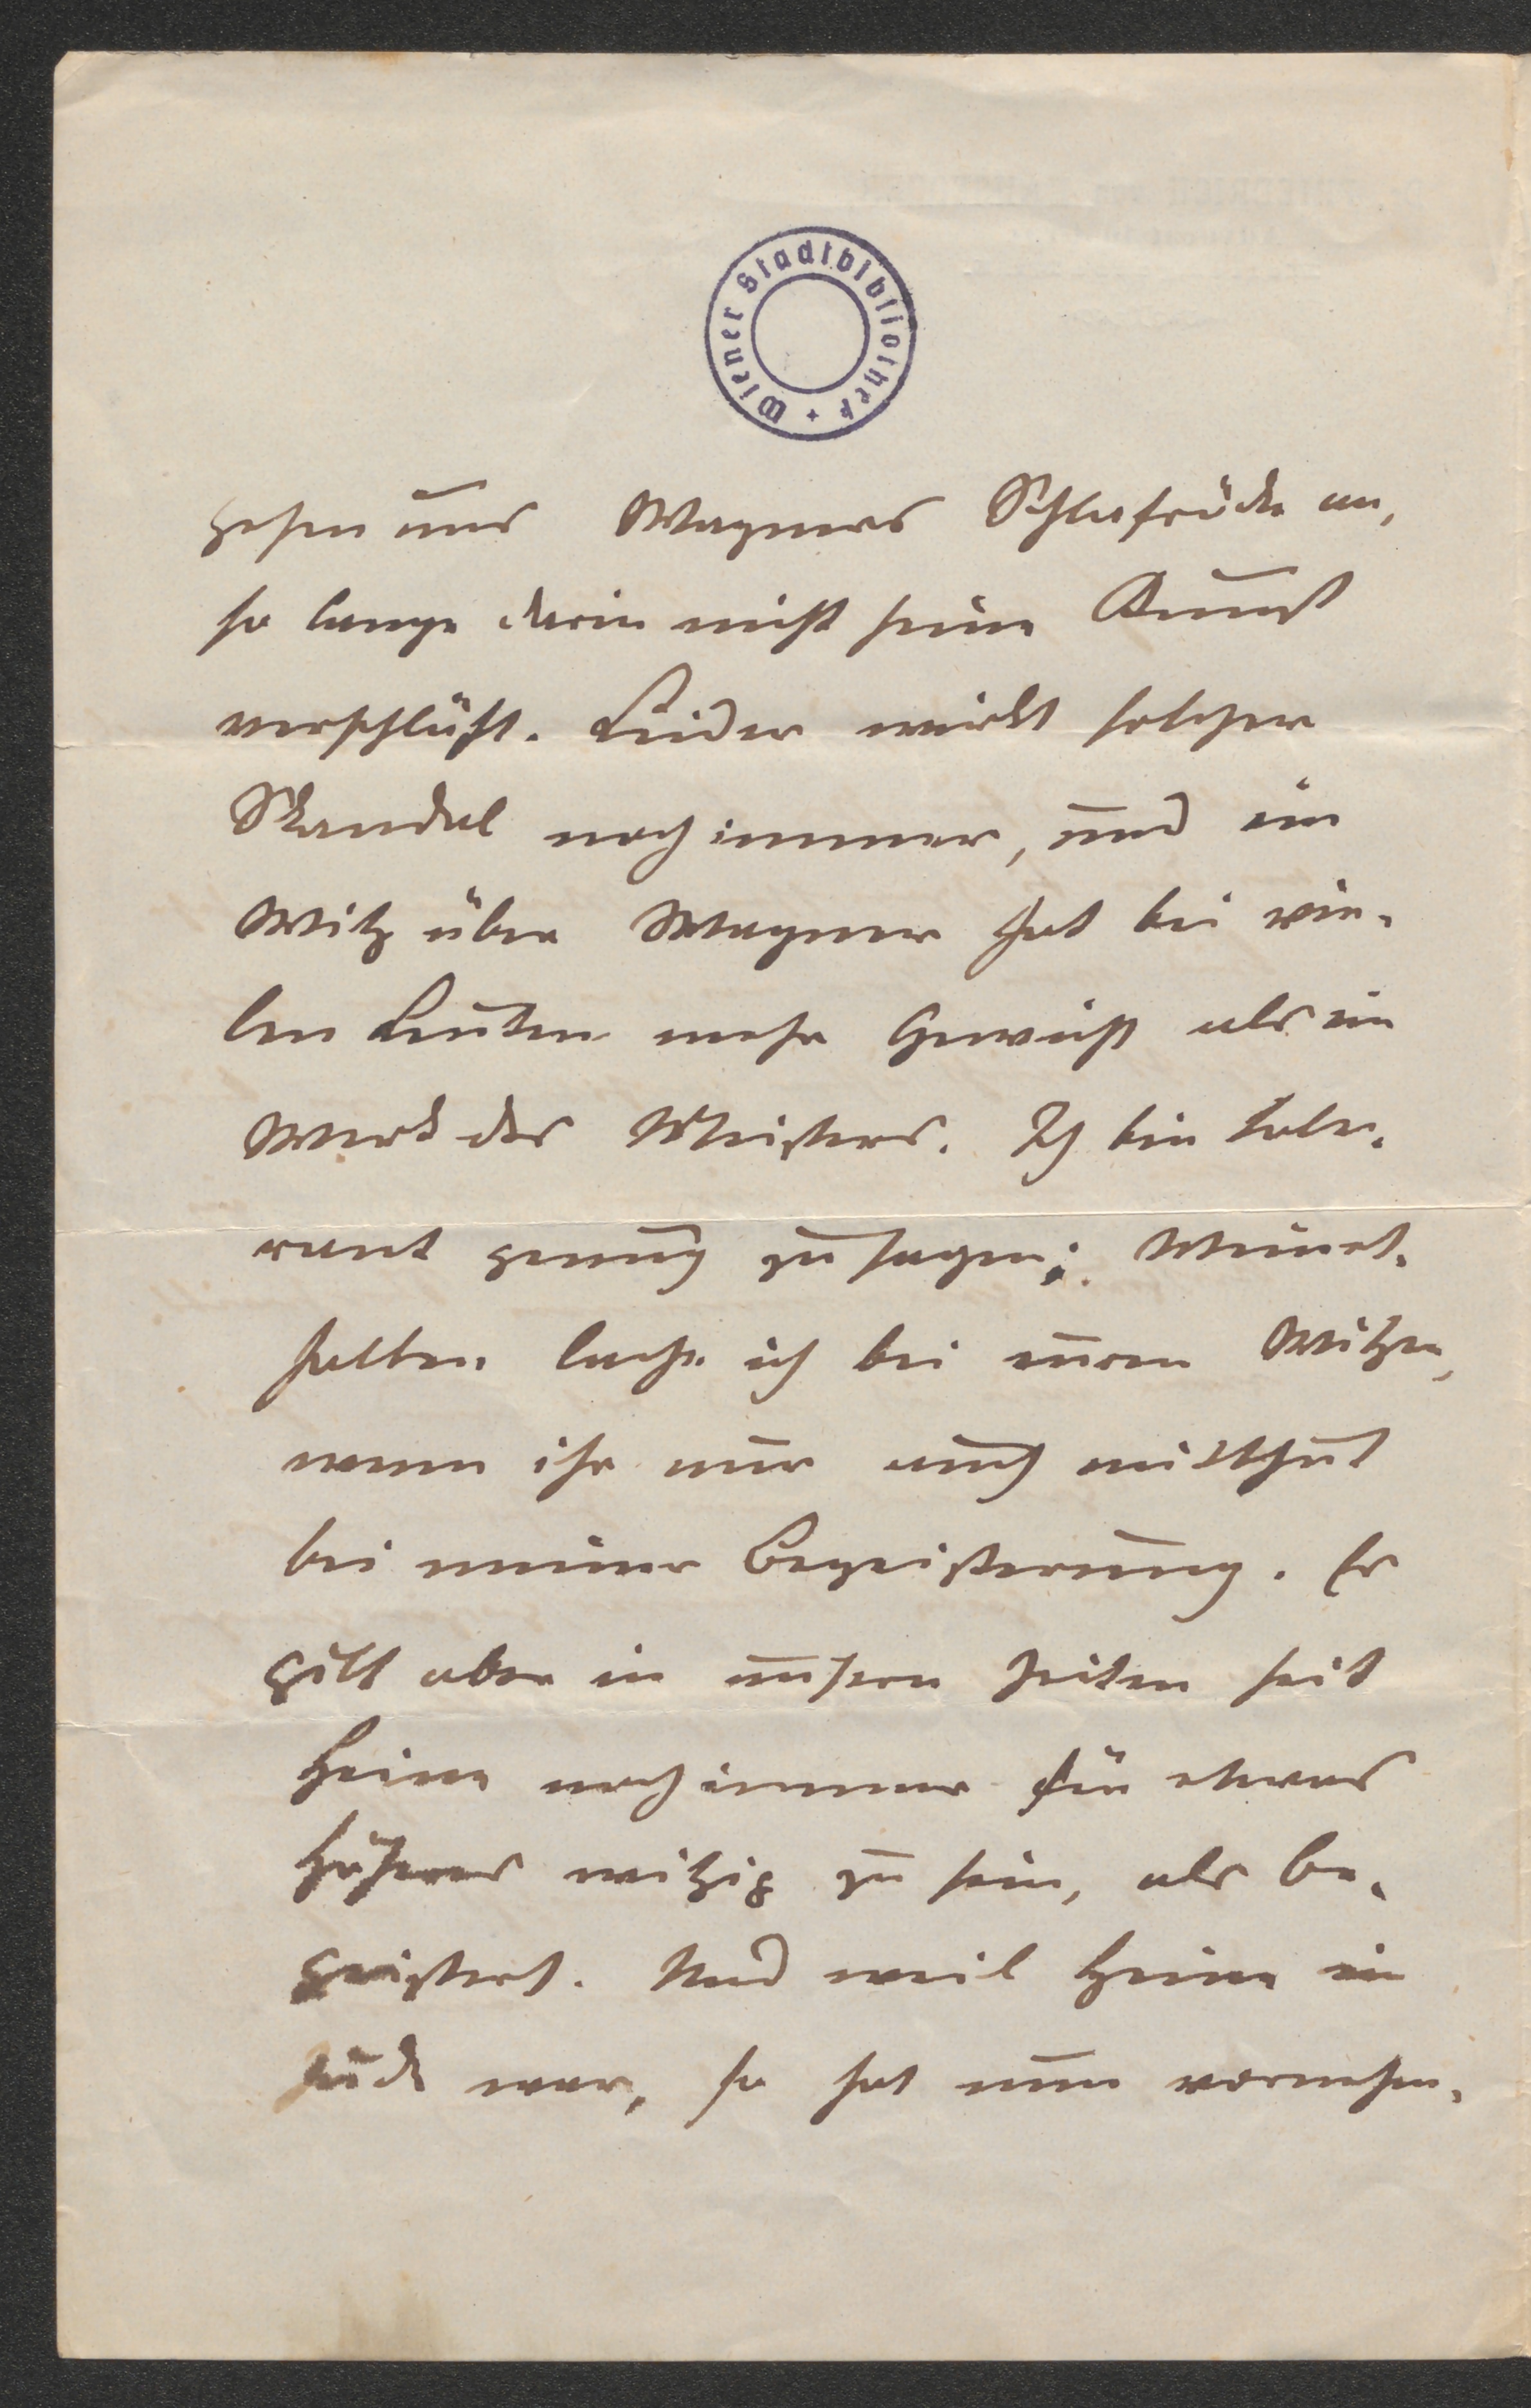 Wiener Stadtbibliothek +
gehen uns Wagners Schlafröcke an,
so lange darin nicht seine Kunst
verschläft. Leider wirkt solcher
Skandal noch immer, und ein
Witz über Wagner hat bei vie-
len Leuten mehr Gewicht als ein
Werk des Meisters. Ich bin tole-
rant genug zu sagen: Meinet-
halben lache ich bei euren Witzen,
wenn ihr nur auch mitthut
bei meiner Begeisterung. Es
gilt aber in unsern Zeiten seit
Heine noch immer für etwas
Höheres witzig zu sein, als be-
geistert. Und weil Heine ein
Jude war, so hat nun vornehm-